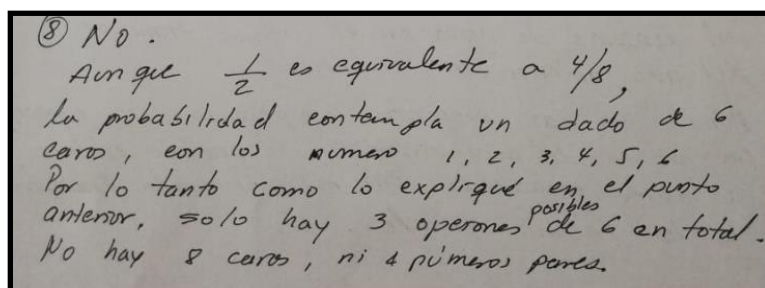 ⑧ No.
Aunque 1/2 es equivalente a 4/8,
la probabilidad contempla un dado de 6
caras, con los numero 1, 2, 3, 4, 5, 6
Por lo tanto como lo expliqué en el punto
anterior, solo hay 3 operones posibles de 6 en total.
No hay 8 caras, ni 4 números pares.